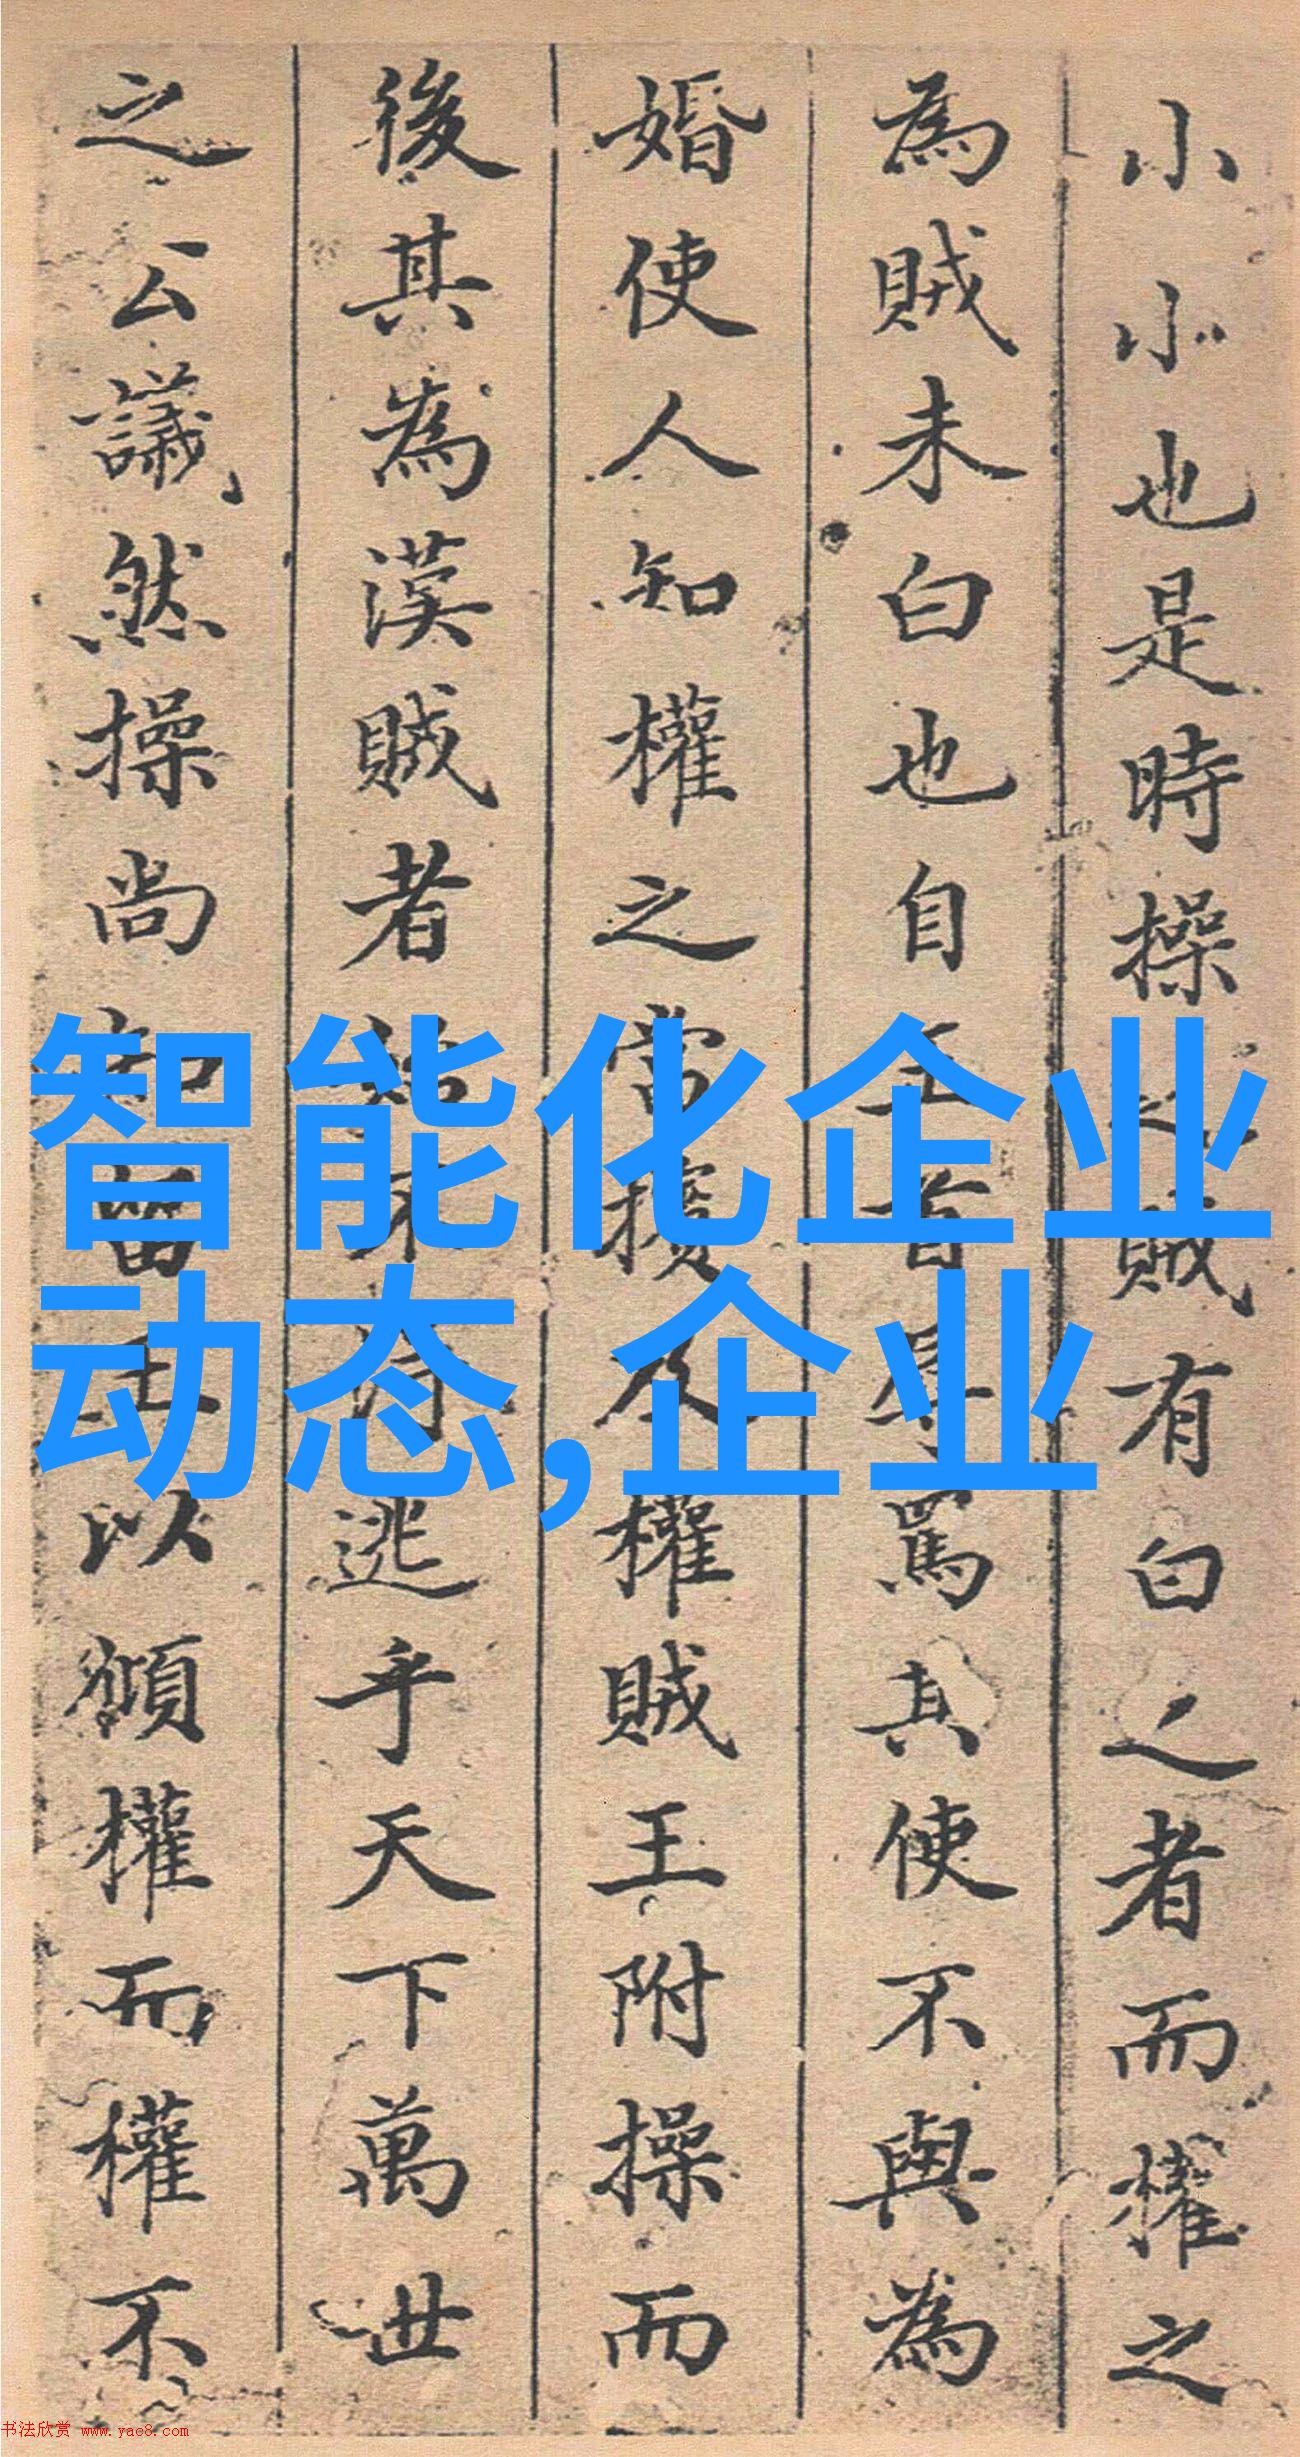 小小也是時操之賊有白之者而權之
為賊未白也自王首罵其使不與為
婚使人知權之當擯及權賊王附操而
後其為漢賊者始不得逃乎天下萬世
之公議然操尚知留王以權而權不
智能化企业
动态,企业
书法欣赏 www.yac8.com